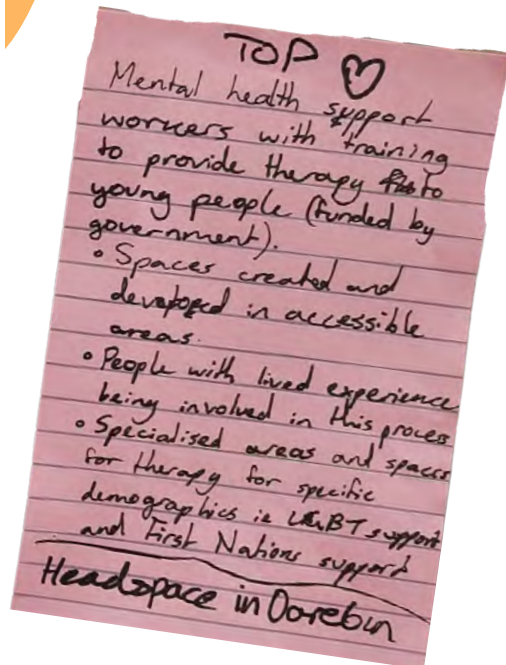 TOP ♡
Mental health support
workers with training
to provide therapy to
young people (funded by
government).
• Spaces created and
developed in accessible
areas.
• People with lived experience
being involved in this process
• Specialised areas and spaces
for therapy for specific
demographics ie LGBT support
and First Nations support
Headspace in Darebin